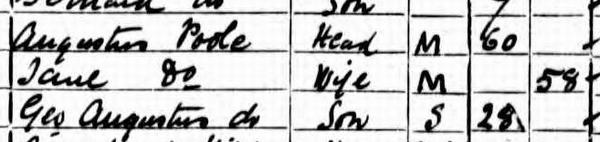 Son 7
Augustus Poole Head M 60
Jane Do Wife M 58
Geo Augustus do Son S 28